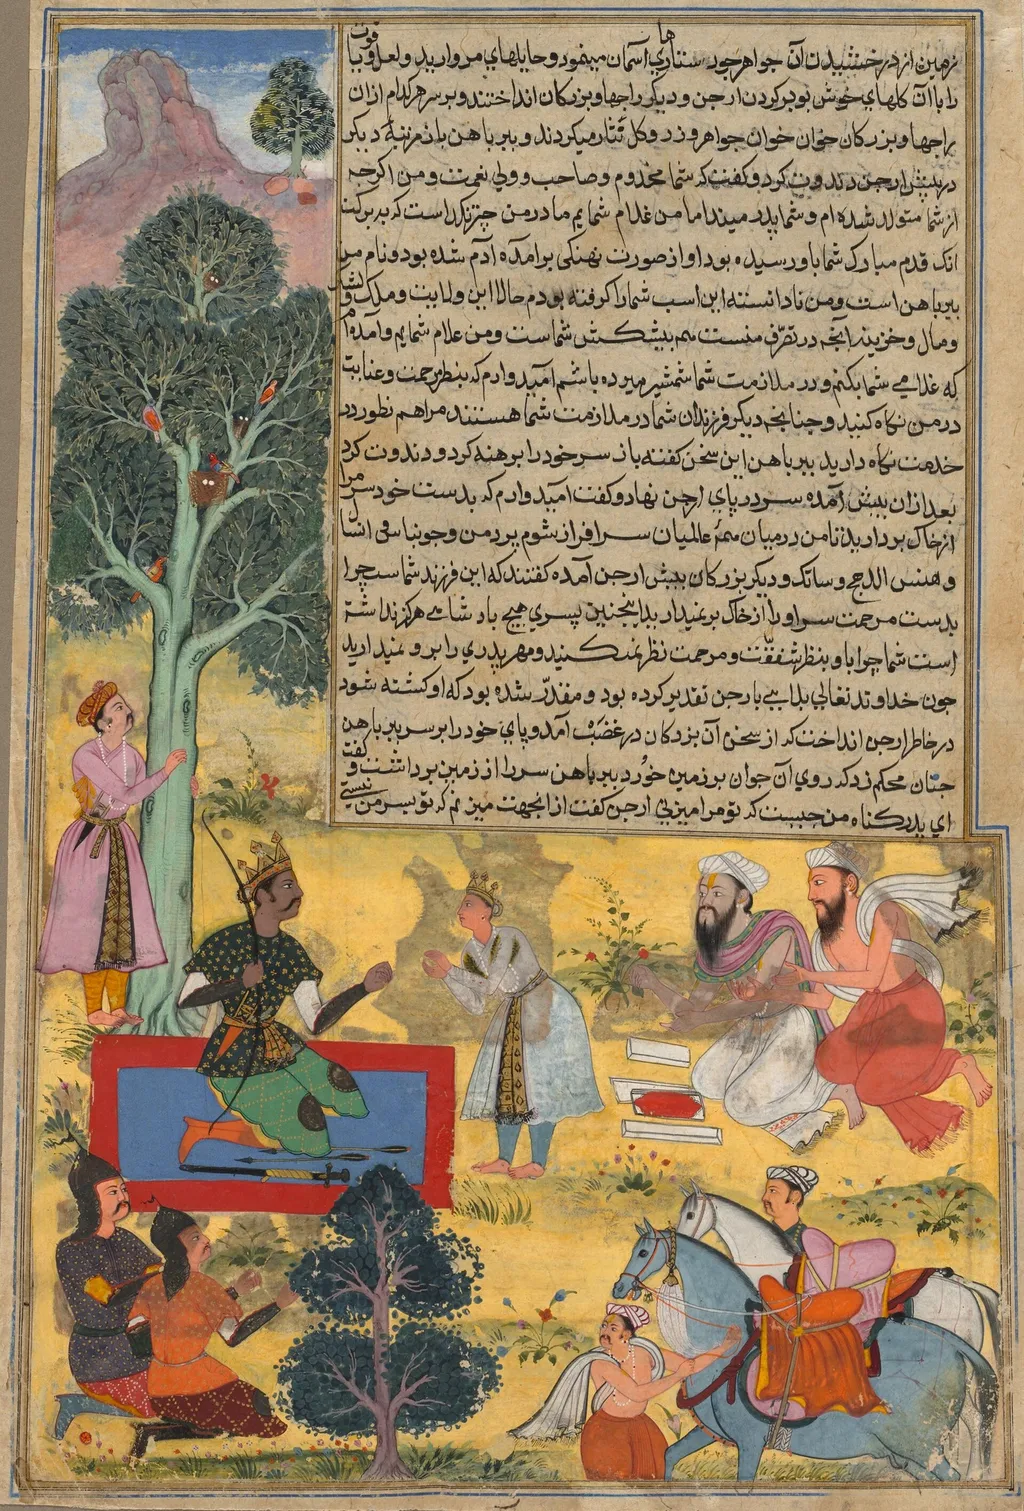 زمین از درخشیدن آن جواهر چون ستارهای آسمان مینمود و حایلهای مروارید و لعل و یاقوت
را با آن کلهای خوش بو بر کردن ارجن و دیکر راجها و بزرکان انداختند و بر سر هر کدام از آن
راجها و بزرکان خوان خوان جواهر و زر و کل نثار میکردند و ببر باهن باز مرتبهٔ دیکر
در پیش ارجن دندوت کرد و کفت که شما مخدوم و صاحب و ولی نعمت و من اکرچه
از شما متولد شده ام و شما پدر میند اما من غلام شمایم مادر من است که به برکت
انک قدم مبارک شما باو رسیده بود او از صورت نهنکی برآمده آدم شده بود و نام من
ببر باهن است و من نادانسته این اسب شما را کرفته بودم حالا این ولایت و ملک و لشکر
و مال و خزینه آنچه در تصرف منست همه پیشکش شماست و من غلام شمایم و آمده ام
که غلامی شما بکنم و در ملازمت شما شمشیر میزده باشم امیدوارم که بنظر مرحمت و عنایت
در من نکاه کنید و چنانچه دیکر فرزندان شما در ملازمت شما هستند مرا هم بطور در
خدمت نکاه دارید ببر باهن این سخن کفته باز سر خود را برهنه کرد و دندوت کرد
بعد از آن پیش آمده سر در پای ارجن نهاد و کفت امیدوارم که بدست خود سر مرا
از خاک بردارید تا من در میان همهٔ عالمیان سرافراز شوم پردمن و جوبناس فی انسا
و هنس الدجی و ساتک و دیکر بزرکان پیش ارجن آمده کفتند که این فرزند شماست چرا
بدست مرحمت سر او را از خاک بر نمیدارید اینچنین پسری هیچ بادشاهی هرکز نداشته
است شما چرا باو بنظر شفقت و مرحمت نظر نمیکنید و مهر پدری را برو نمیدارید
چون خداوند تعالی بلایی بارجن تقدیر کرده بود و مقدّر شده بود که او کشته شود
در خاطر ارجن انداخت که از سخن آن بزرکان در غضب آمد و پای خود را بر سر ببر باهن
چنان محکم زد که روی آن جوان بر زمین خورد ببر باهن سر را از زمین برداشت و کفت
ای پدر کناه من چیست که تو مرا میزنی ارجن کفت از انجهت میزنم که تو پسر من نیستی